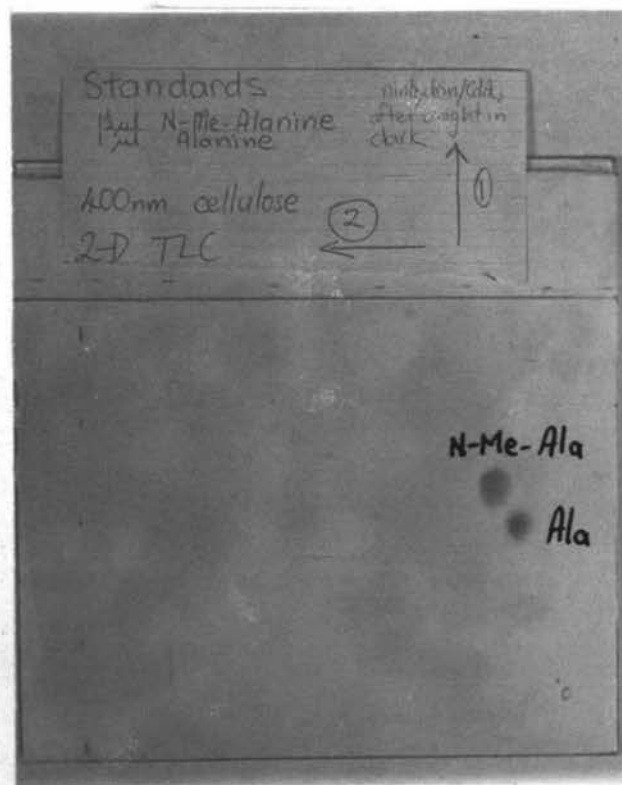 Standards
N-Me-Alanine
Alanine
ninhydrin/Cd,
after weight in
dark
1
400nm cellulose
2
2-D TLC
N-Me-Ala
Ala